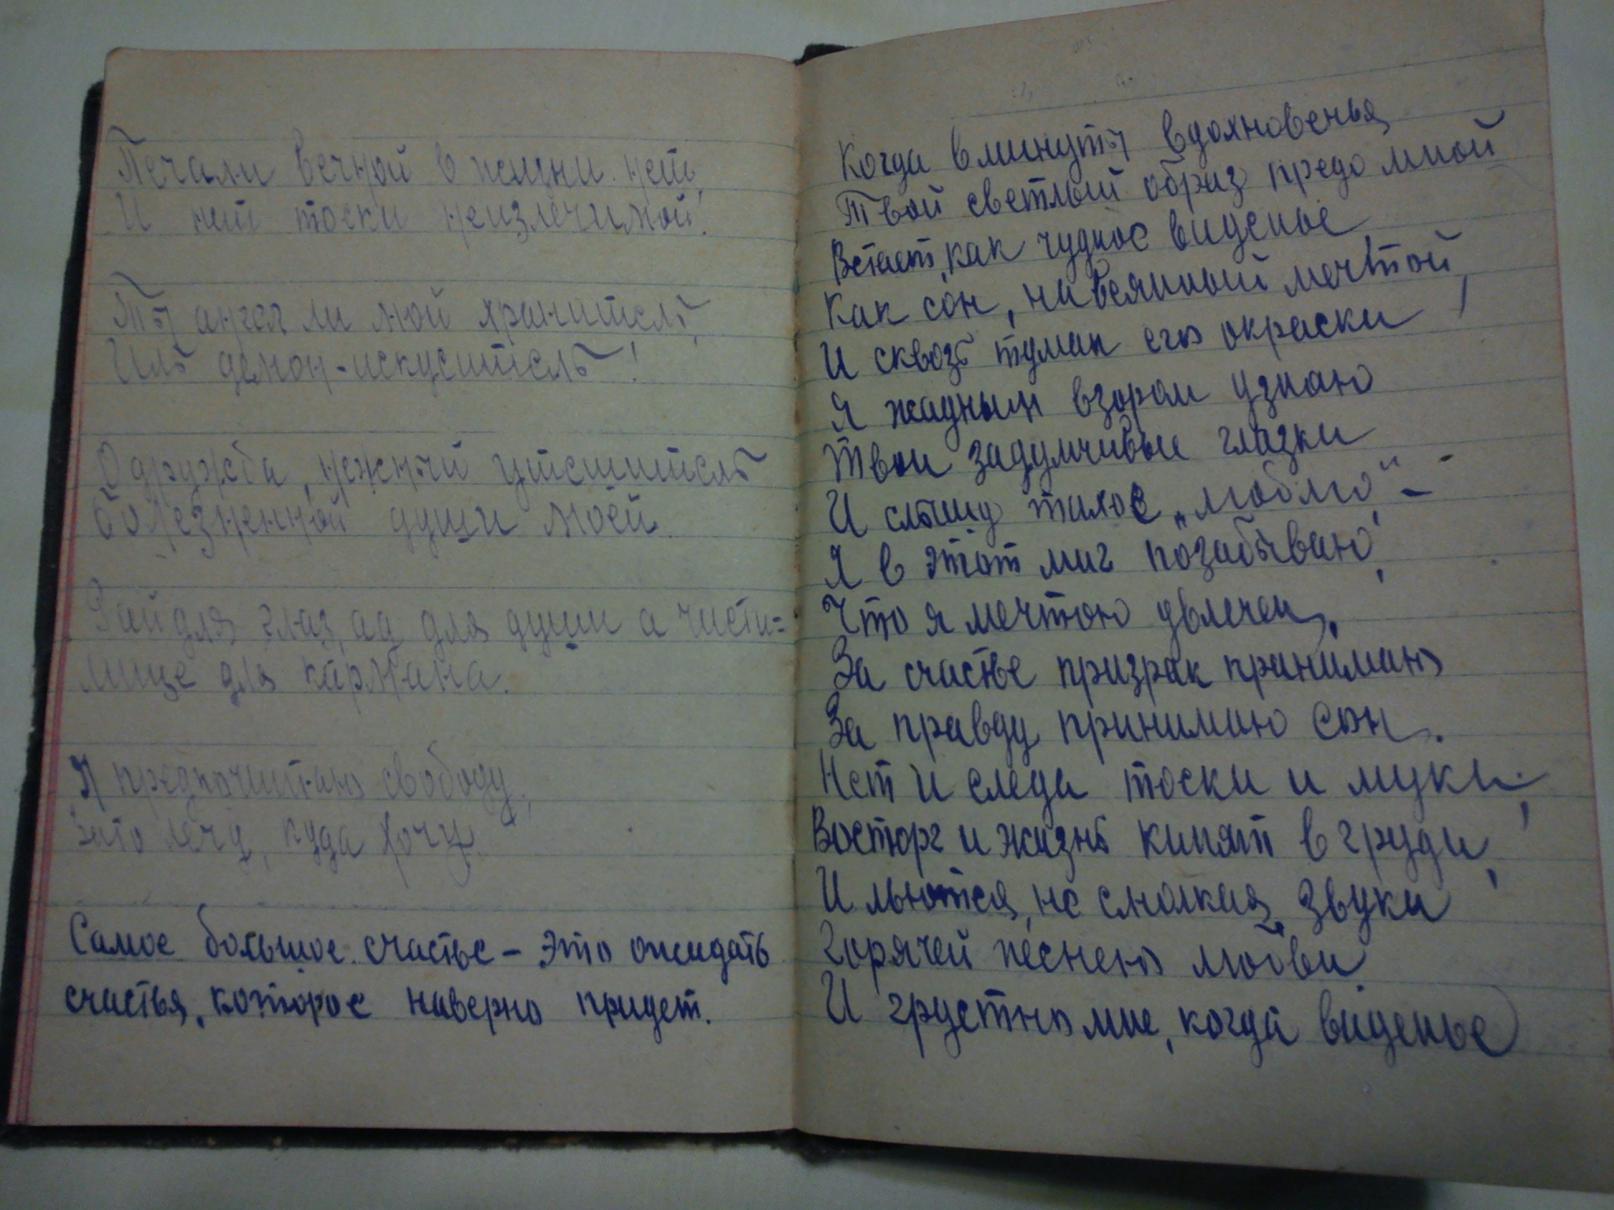 Печали вечной в жизни нет,
И нет тоски неизлечимой!
Ты ангел ли мой хранитель,
Иль демон-искуситель!
О дружба, нежный утешитель
болезненной души моей.
Рай для глаз, ад для души а чисти=
лище для кармана.
Я предпочитаю свободу,
зато лечу, куда хочу.
Самое большое счастье – это ожидать
счастья, которое наверно придет.
Когда в минуты вдохновенья
Твой светлый образ предо мной
Встает, как чудное виденье
Как сон, навеянный мечтой,
И сквозь туман его окраски
Я жадным взором узнаю
Твои задумчивые глазки
И слышу тихое „люблю“ –
Я в этот миг позабываю,
Что я мечтою увлечен,
За счастье призрак принимаю
За правду принимаю сон.
Нет и следа тоски и муки,
Восторг и жизнь кипят в груди,
И льются, не смолкая, звуки
Горячей песнею любви
И грустно мне, когда виденье